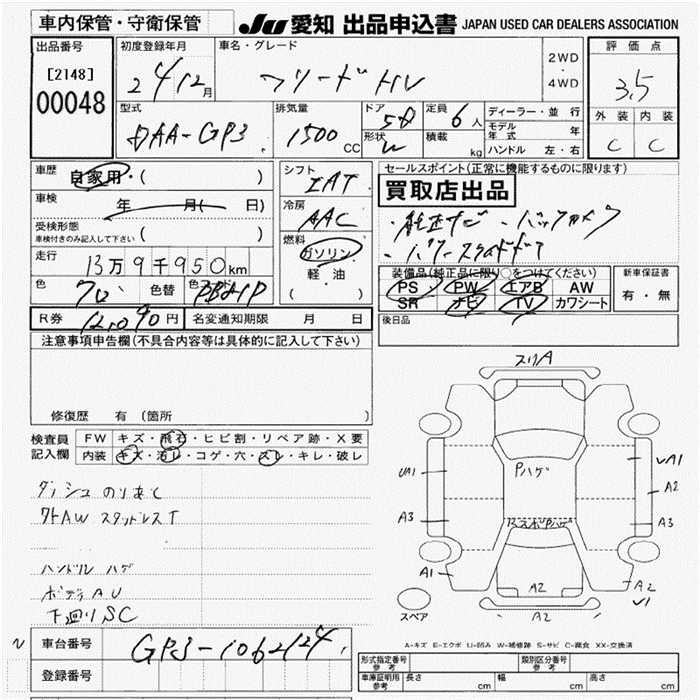 車内保管・守衛保管
JU 愛知 出品申込書 JAPAN USED CAR DEALERS ASSOCIATION
出品番号
[2148]
00048
初度登録年月
24年12月
車名・グレード
フリードHV
2WD
・
4WD
評価点
3.5
外装 内装
C C
型式
DAA-GP3
排気量
1500 CC
ドア
5D
形状
W
定員 6人
積載 kg
ディーラー・並行
モデル年式 年
ハンドル 左・右
車歴
自家用・( )
車検
年 月( 日)
受検形態
車検付きのみ記入して下さい ( )
走行
13万9千950km
色
クロ
色替
色コード
PB81P
シフト
IAT
冷房
AAC
燃料
ガソリン
軽・油
( )
セールスポイント(正常に機能するものに限ります)
買取店出品
・純正ナビ・バックカメラ
・パワースライドドア
装備品(純正品に限り○をつけてください)
PS PW エアB AW
SR ナビ TV カワシート
新車保証書
有・無
後日品
R券 12,090円
名変通知期限 月 日
注意事項申告欄(不具合内容等は具体的に記入して下さい)
修復歴 有(箇所
検査員記入欄
FW キズ・飛石・ヒビ割・リペア跡・X要
内装 キズ・汚レ・コゲ・穴・スレ・キレ・破レ
ダッシュ のりあと
社外AW スタッドレスT
ハンドル ハゲ
ボディ AU
下廻りSC
スリA
UA1
A3
A1
Pハゲ
A2
A2
vA1
A2
A3
A2
v1
スペア
A-キズ E-エクボ U-凹み W-補修跡 S-サビ C-腐食 XX-交換済
車台番号
GP3-1062124
登録番号
形式指定番号
参考
類別区分番号
参考
車庫証明用
参考
長さ cm
幅 cm
高さ cm